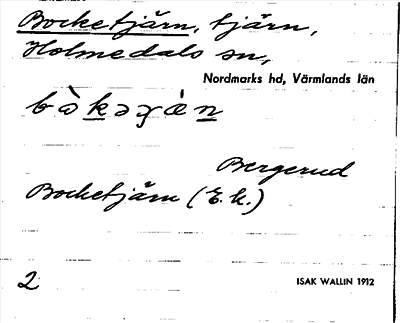 Bocketjärn, tjärn,
Holmedals sn,
Nordmarks hd, Värmlands län
Bergerud
Bocketjärn (E.k.)
2
ISAK WALLIN 1912